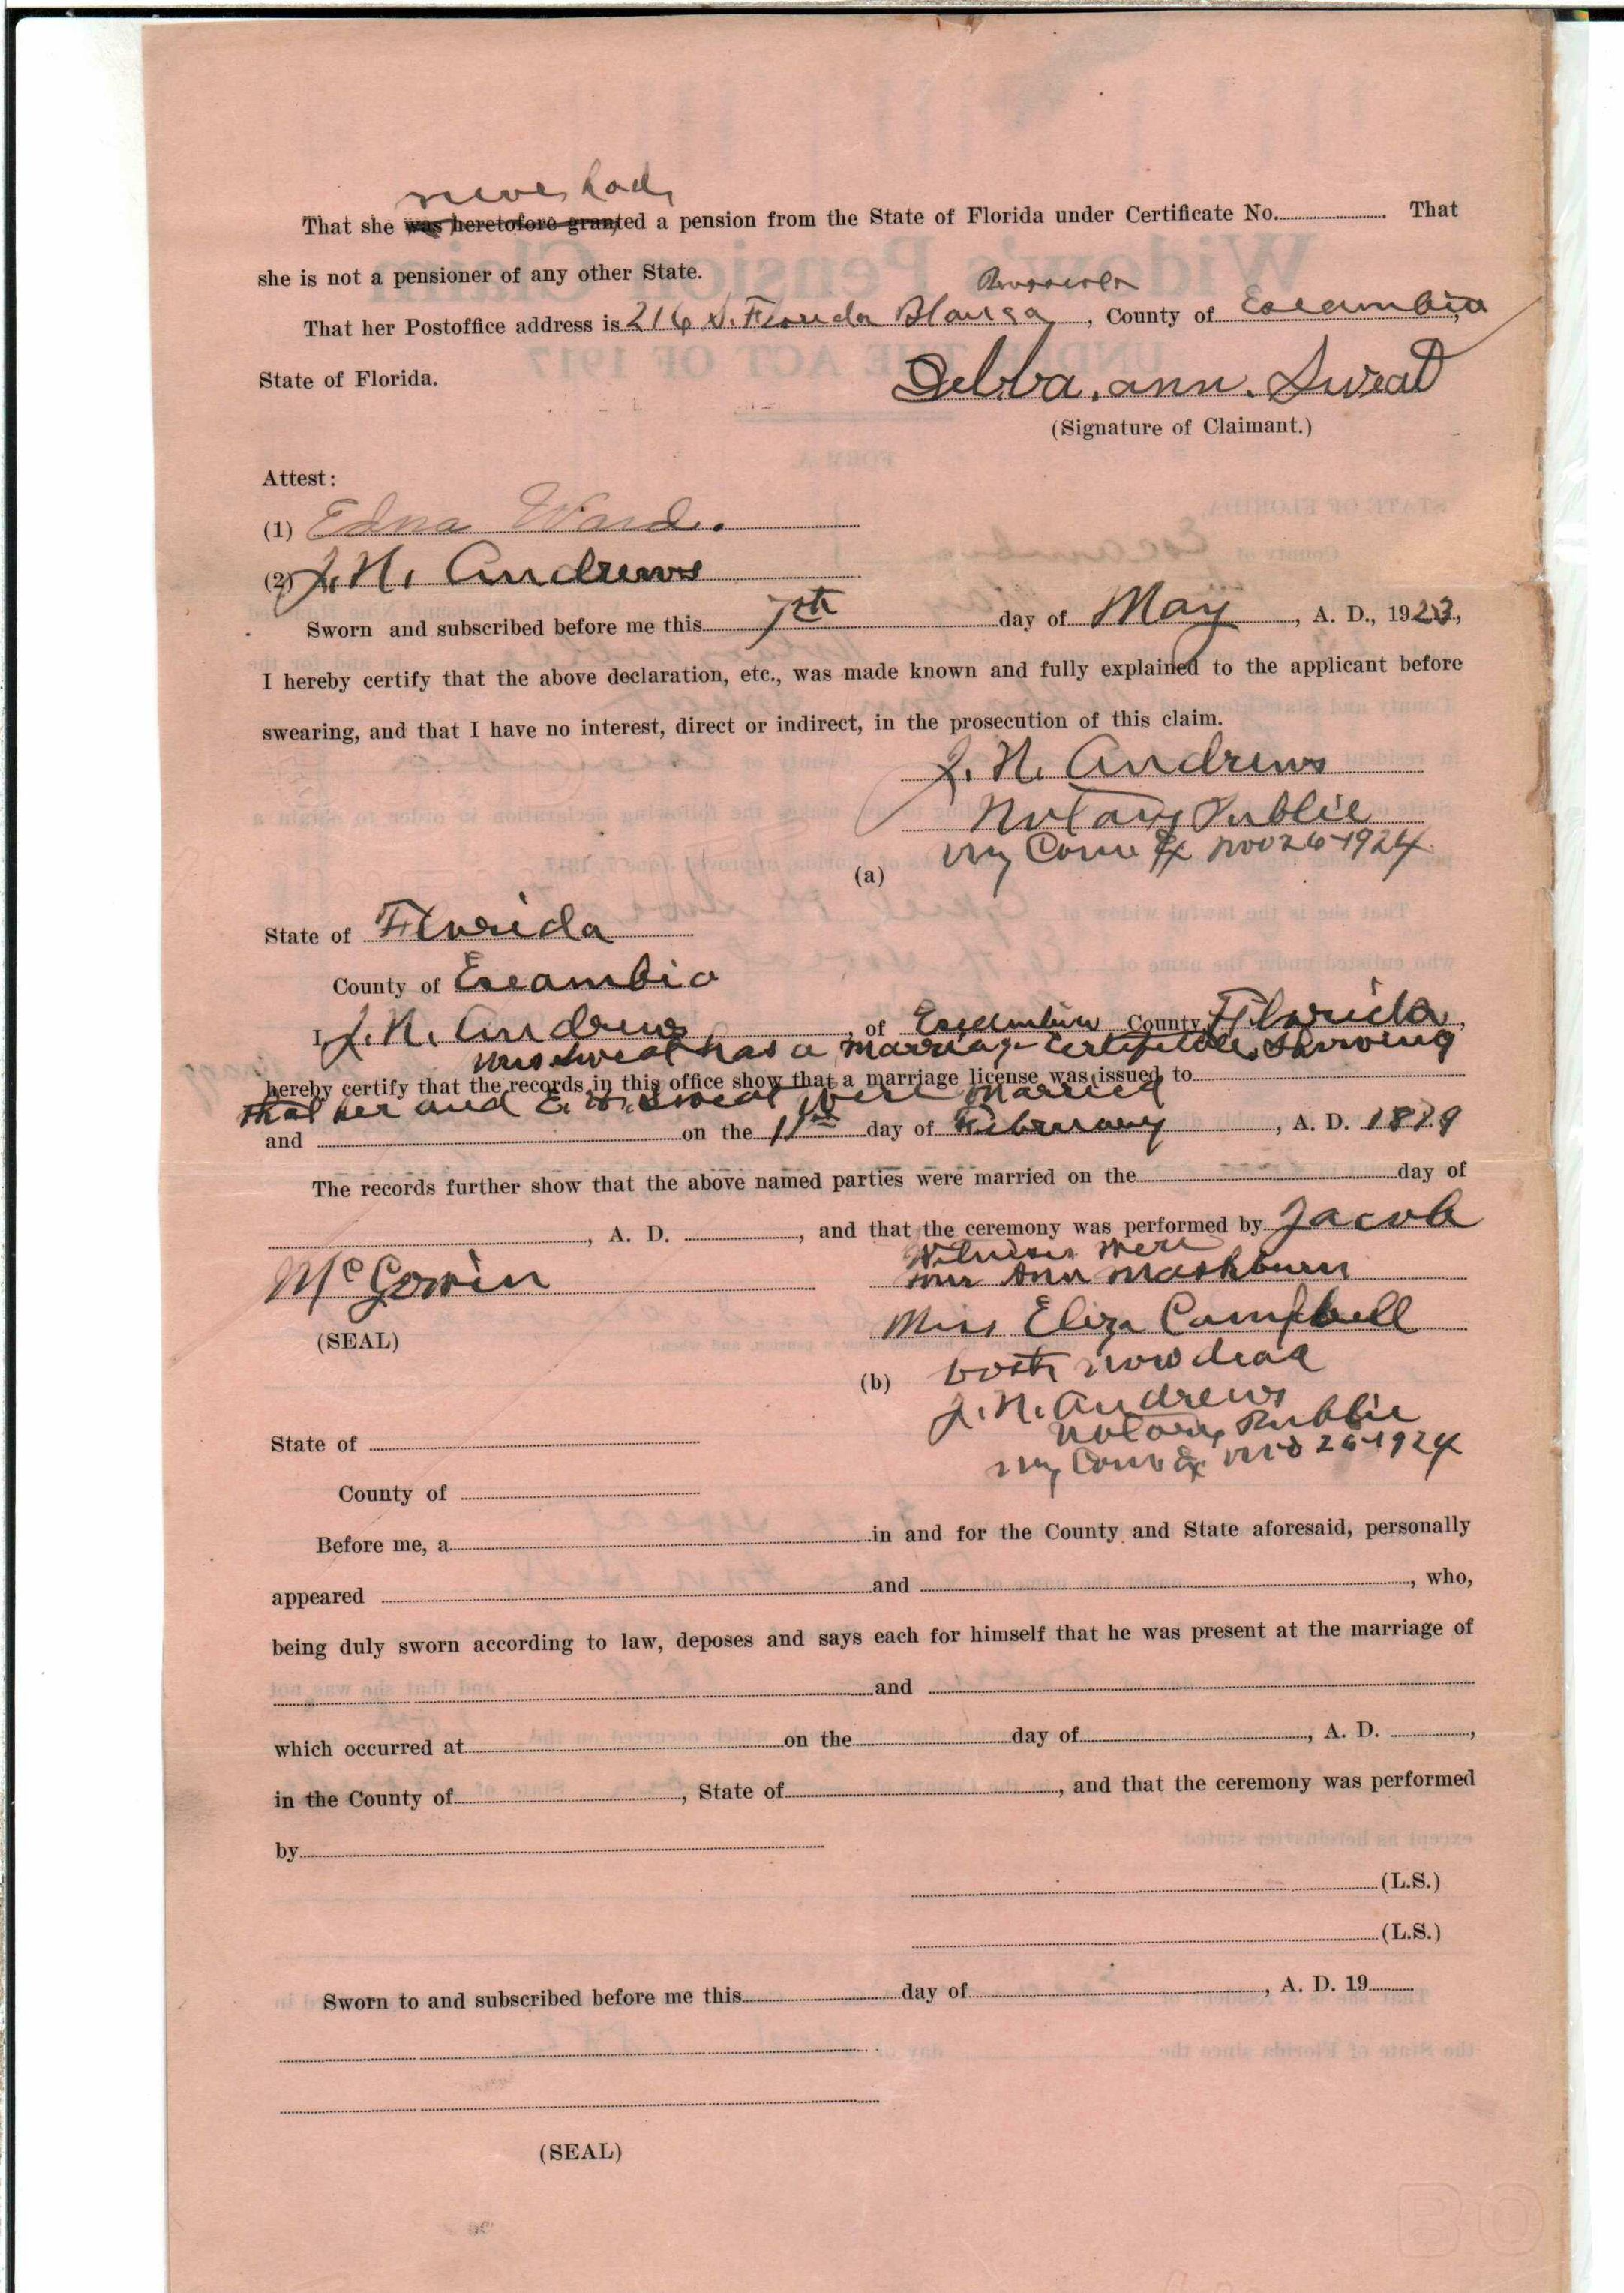 never had
That she was heretofore granted a pension from the State of Florida under Certificate No. That
she is not a pensioner of any other State.
Pensacola
That her Postoffice address is 216 S. Florida Blanca, County of Escambia
State of Florida.
Debba. ann. Sweat
(Signature of Claimant.)
Attest:
(1) Edna Ward.
(2) J. N. Andrews
Sworn and subscribed before me this 7th day of May, A. D., 1923,
I hereby certify that the above declaration, etc., was made known and fully explained to the applicant before
swearing, and that I have no interest, direct or indirect, in the prosecution of this claim.
J. N. Andrews
Notary Public
My Com Ex Nov 26-1924
(a)
State of Florida
County of Escambia
I, J. N. Andrews, of Escambia County, Florida,
Mrs Sweat has a marriage certificate, showing
hereby certify that the records in this office show that a marriage license was issued to
that her and E. W. Sweat were married
and on the 11th day of February, A. D. 1879
The records further show that the above named parties were married on the day of
, A. D. , and that the ceremony was performed by Jacob
Witnesses were
McGowin Ann Mashburn
Miss Eliza Campbell
(SEAL)
(b) both now dead
J. N. Andrews
Notary Public
My Com Ex Nov 26-1924
State of
County of
Before me, a in and for the County and State aforesaid, personally
appeared and , who,
being duly sworn according to law, deposes and says each for himself that he was present at the marriage of
and
which occurred at on the day of , A. D. ,
in the County of , State of , and that the ceremony was performed
by
(L.S.)
(L.S.)
Sworn to and subscribed before me this day of , A. D. 19
(SEAL)